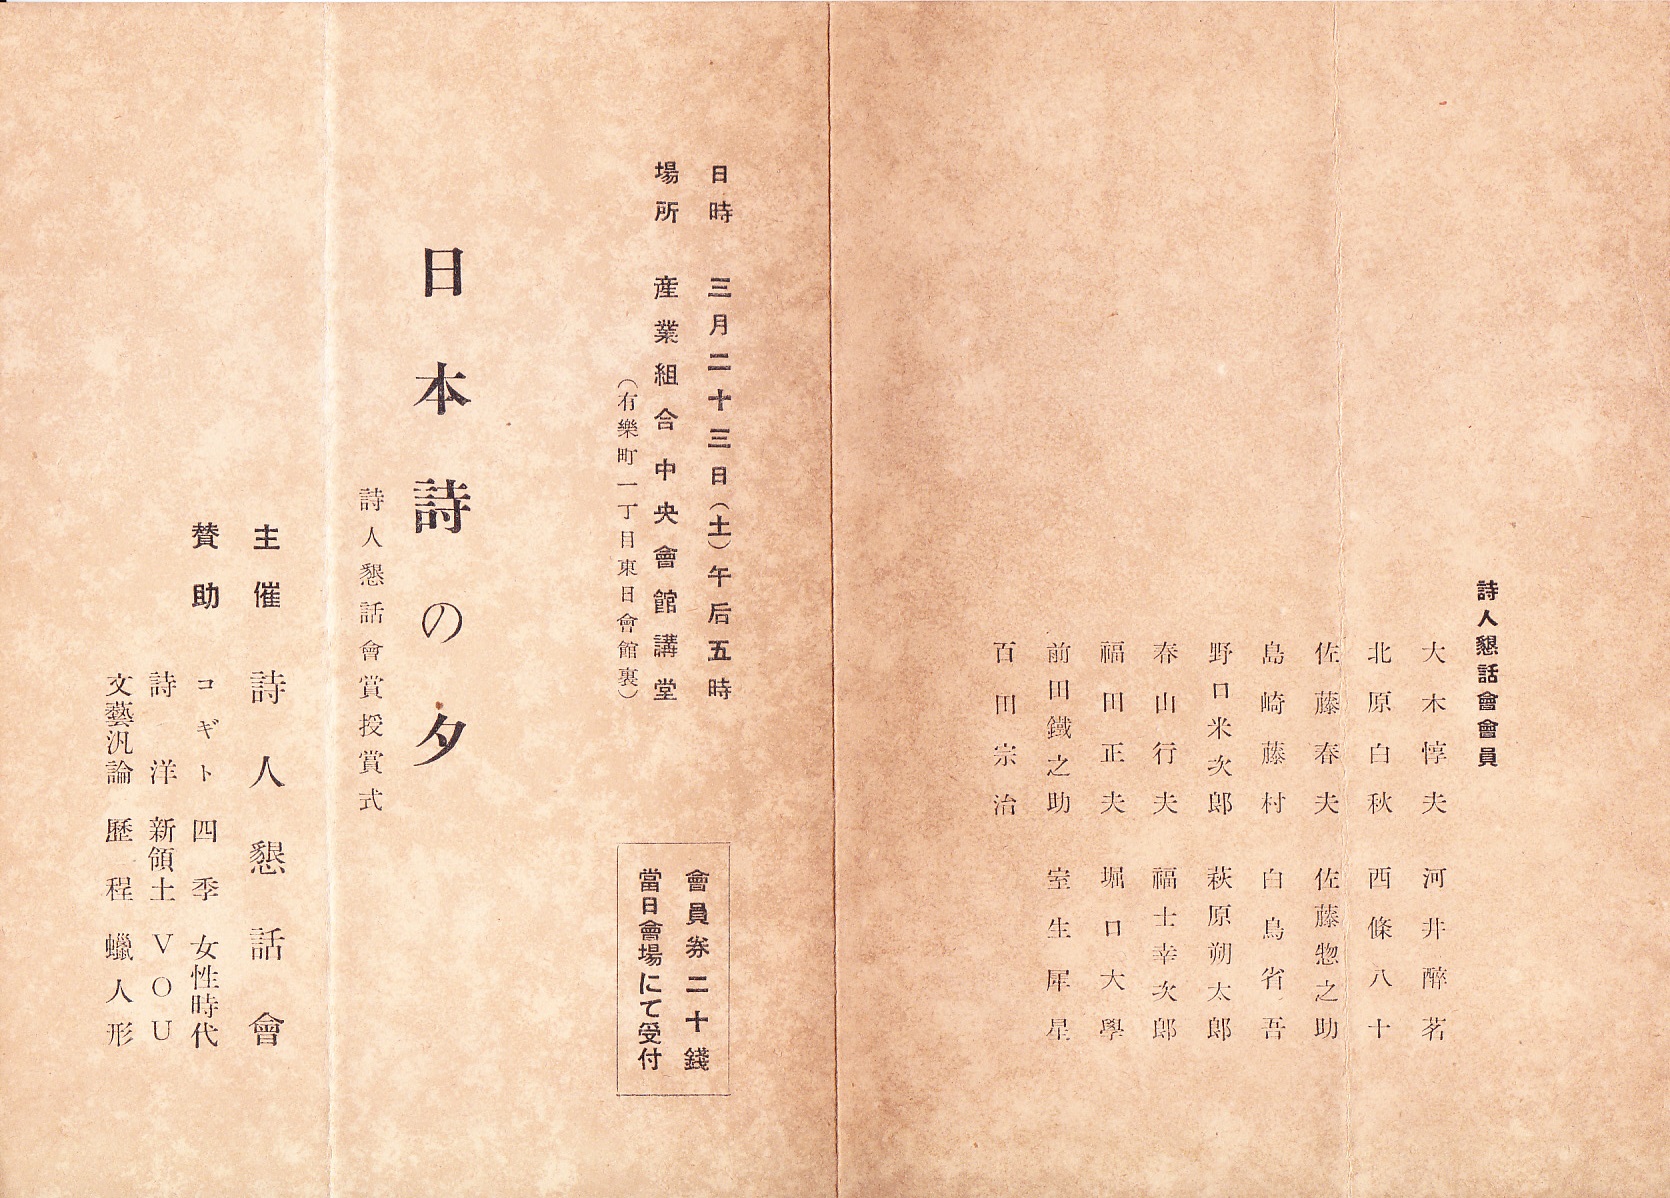 詩人懇話會會員
大木惇夫　河井醉茗
北原白秋　西條八十
佐藤春夫　佐藤惣之助
島崎藤村　白鳥省吾
野口米次郎　萩原朔太郎
春山行夫　福士幸次郎
福田正夫　堀口大學
前田鐵之助　室生犀星
百田宗治
日時　三月二十三日（土）午后五時
場所　産業組合中央會館講堂
（有樂町一丁目東日會館裏）
會員券二十錢
當日會場にて受付
日本詩の夕
詩人懇話會賞授賞式
主催　詩人懇話會
贊助　コギト　四季　女性時代
詩洋　新領土　VOU
文藝汎論　歷程　蠟人形